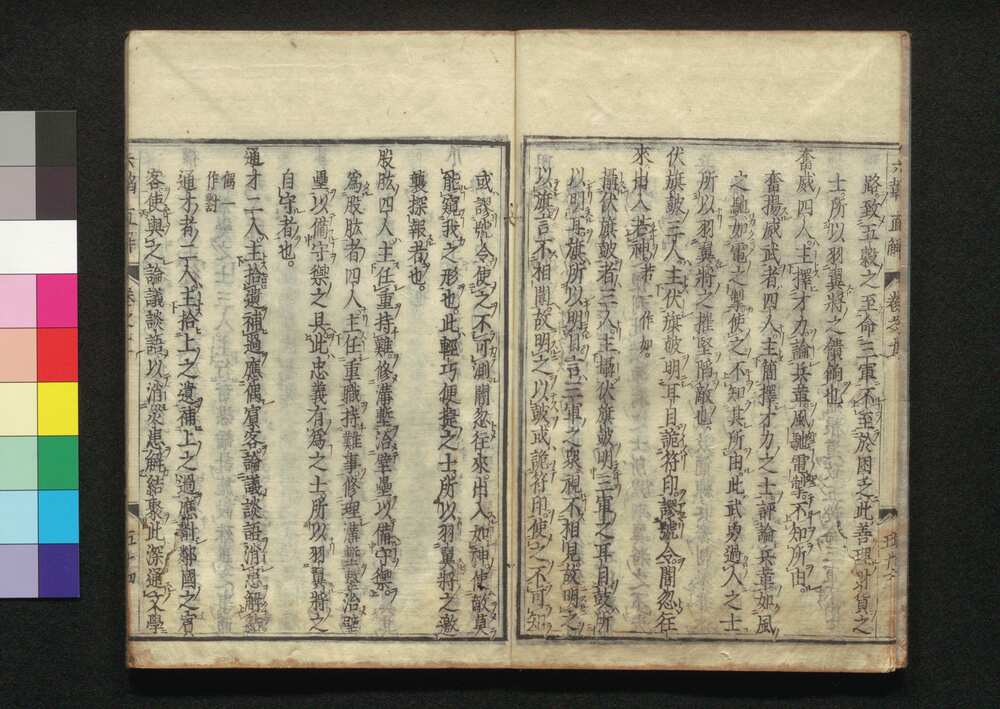 路致五穀之至命三軍不至於困乏此善理財貨之
士所以羽翼將之饋餉也
奮威四人主擇才力論兵革風馳電掣不知所由
奮揚威武者四人主簡擇才力之士評論兵革如風
之馳如電之掣使之不知其所由此武勇過人之士
所以羽翼將之摧堅陷敵也
伏旗鼓三人主伏旗鼓明耳目詭符印謬號令闇忽往
來出入若神者一作如
攝伏旗鼓者三人主攝伏旗鼓明三軍之耳目鼓所
以明耳旗所以明目言三軍之衆視不相見故明之
以旗言不相聞故明之以鼓或詭符印使之不可知
或謬號令使之不可測闇忽往來出入如神使敵莫
能窺我之形也此輕巧便捷之士所以羽翼將之邀
襲探報者也
股肱四人主任重持難修溝塹治壁壘以備守禦
爲股肱者四人主任重職持難事修理溝塹墓治壁
壘以備守禦之具此忠義有爲之士所以羽翼將之
自守者也
通才二人主拾遺補過應偶賓客論議談語消患解結
偶一作對
通才者二人主拾上之遺補上之過應對鄰國之賓
客使與之論議談語以消衆患解結聚此深通文學